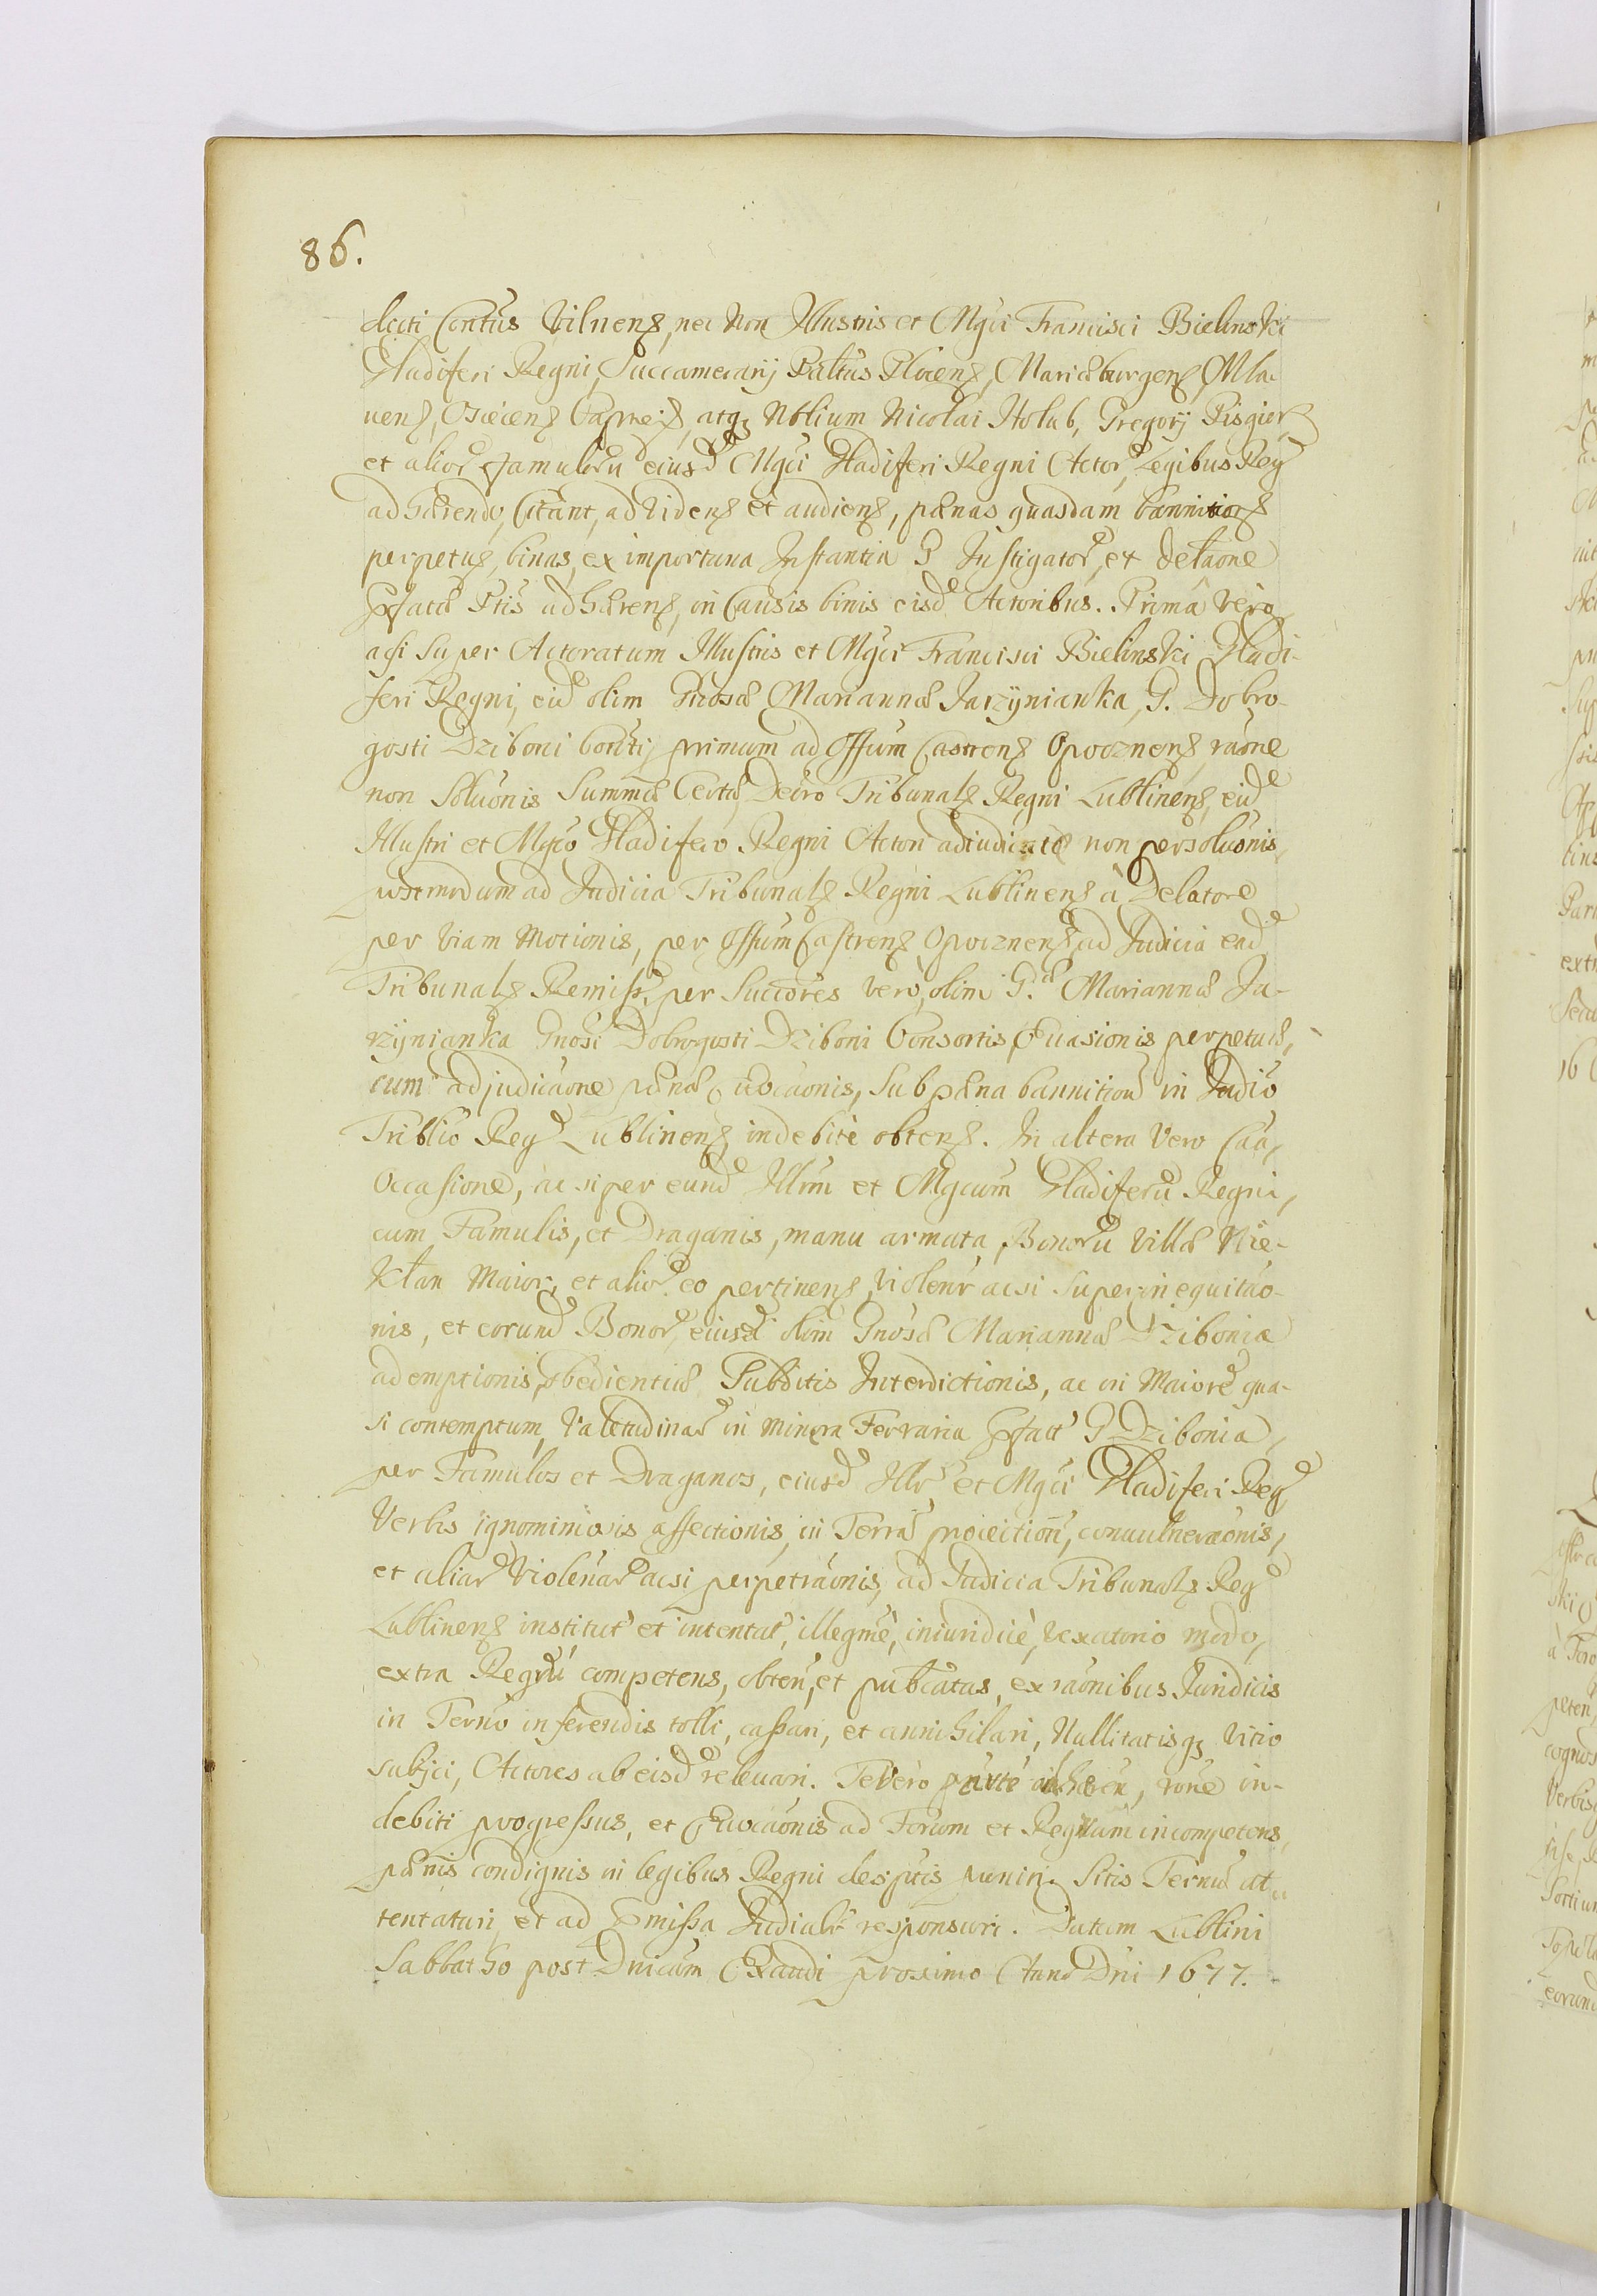 86.
dicti Contus Vilnens, nec non Illustris et Mgci Francisci Bielinski
Gladiferi Regni, Succamerarij Paltus Plocens, Mariæburgens, Mla-
uens, Osiecens Capnei, atq Nblium Nicolai Holub, Gregorij Pisgier
et alior famuloru eiusd Mgci Gladiferi Regni Actor, Legibus Reg
adhærendo, Citant, ad videns et audiens, pænas quasdam bannitions
perpetuæ, binas, ex importuna Instantia G Instigator, et delaone
Præfatæ Ptis adhærens, in Causis binis eisd Actoribus. Prima vero
acsi super Actoratum Illustris et Mgci Francisci Bielinski Gladi-
feri Regni, eid olim Gnosæ Mariannæ Jarzynianka, G. Dobro-
gosti Dziboni Consti, primum ad Offum Castrens Opocznens raone
non Soluonis Summæ Certæ, Decro Tribunals Regni Lublinens, eid
Illustri et Mgco Gladifero Regni Actori adiudicatæ non persoluonis,
postmodum ad Judicia Tribunals Regni Lublinens à Delatore
per viam Motionis, per Offum Castrens Opocznens ad Judicia ead
Tribunals Remiss, per Succores vero, olim G. Mariannæ Ja-
rzynianka Gnosi Dobrogosti Dziboni Consortis, Euasionis perpetuæ,
cum adjudicaone pænæ euocaonis, Sub pæna bannition in Judio
Triblio Reg Lublinens indebitè obtens. In altera vero Caa,
Occasione, ac si per eund Illrm et Mgcum Gladiferu Regni,
cum Famulis, et Draganis, manu armata, Bonoru Villæ Nie-
kłan Maior, et alior eo pertinens, violentr acsi superinequitao-
nis, et eorund Bonor, eiusd olim Gnosæ Mariannæ Dzibonia
ademptionis, obedientiæ Subditis Interdictionis, ac in Maiore qua-
si contemptum, Valetudinar in minera Ferraria Præfatt G Dzibonia,
per Famulos et Draganos, eiusd Illr et Mgci Gladiferi Reg
Verbis ignominiosis affectionis, in Terra proiection, conuulneraonis,
et aliar Violenar acsi perpetraonis, ad Judicia Tribunals Reg
Lublinens institut et intentat, illegme, iniuridicè, vexatorio modo,
extra Regru competens, obten, et pubcatas, ex raonibus Juridicis
in Terno inferendis tolli, cassari, et annihilari, Nullitatisq vitio
subjci, Actores ab eisd releuari. Te vero adhæren, rone in-
debiti progressus, et Euocaonis ad Forum et Regrum incompetens,
pænis condignis in legibus Regni desptis puniri. Sitis Terno at-
tentaturi, et ad Præmissa Judialr responsuri. Datum Lublini
Sabbatho post Dnicam Exaudi proximo Anno Dni 1677.